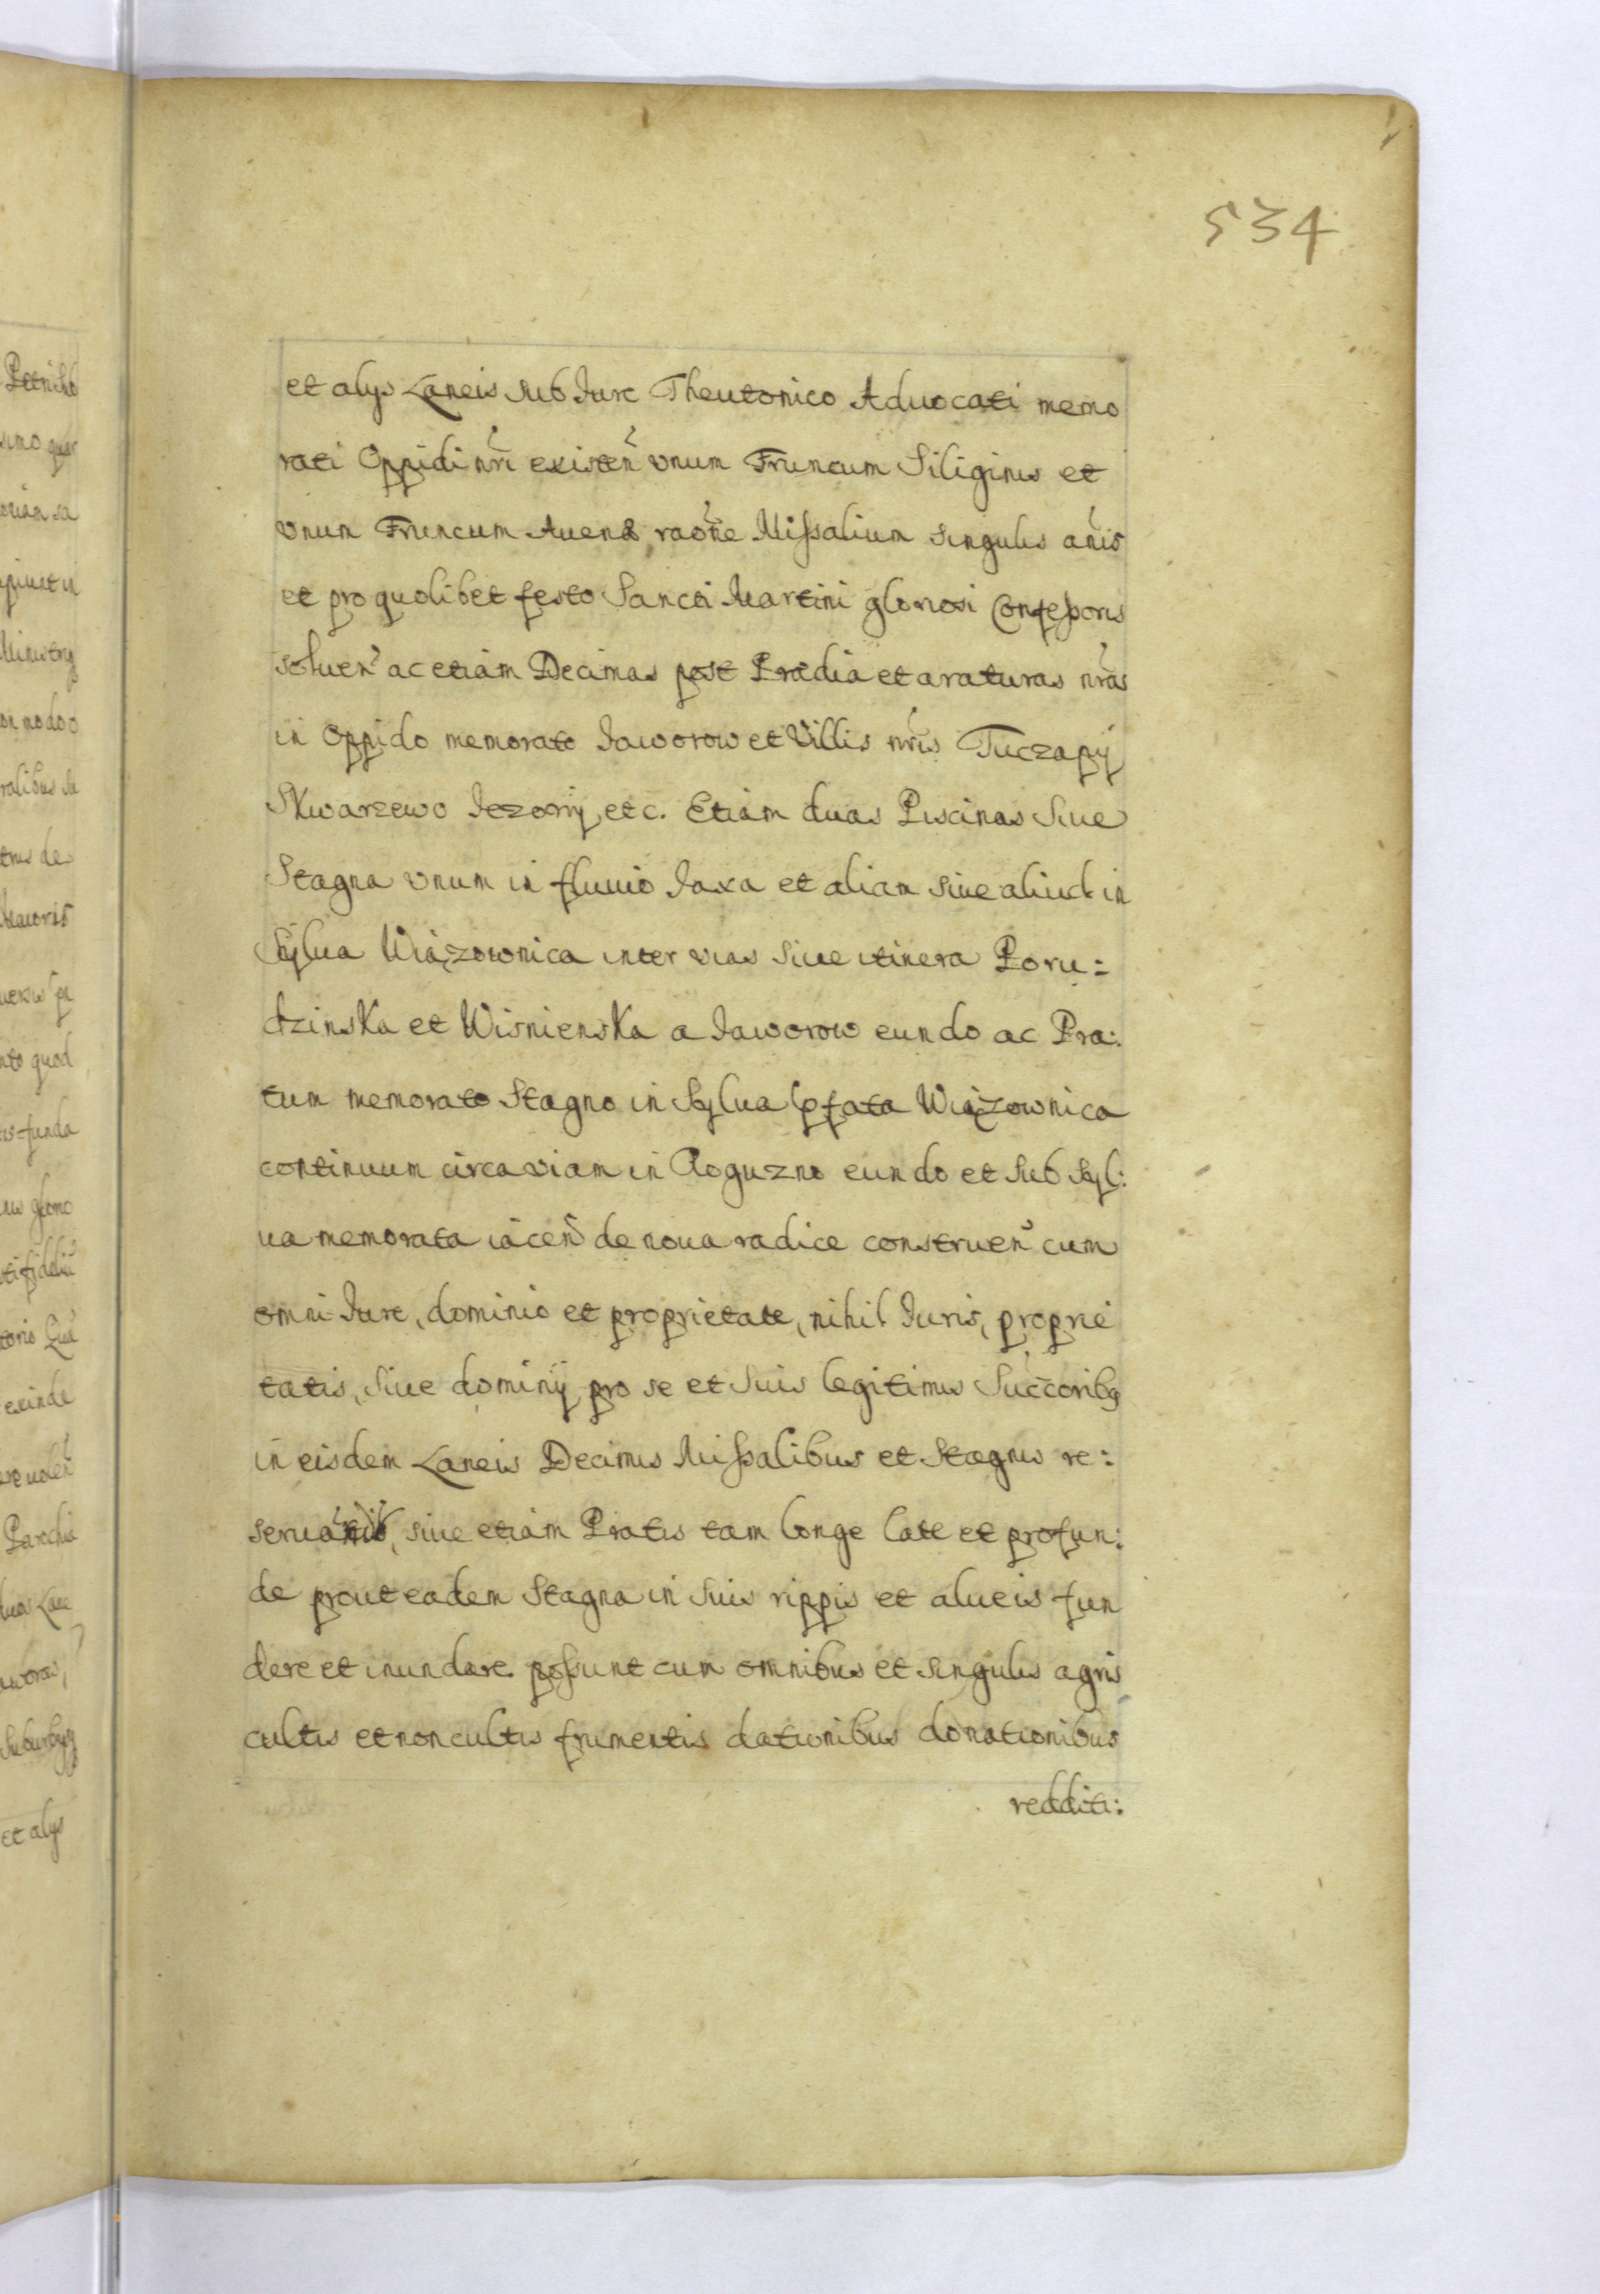 534
et alys Laneis sub Jure Theutonico Advocati memo
rati Oppidi nr̃i existeñ vnum Truncum Siliginis et
vnum Truncum Auenæ, raoñe Missalium singulis añis
et pro quolibet festo Sancti Martini gloriosi Confessoris
soluen̄ ac etiam Decimas post Prædia et araturas nr̃as
in Oppido memorato Jaworow et Villis nr̃is Tuczapÿ
Skwarzewo Jezorÿ, etc. Etiam duas Piscinas Siue
Stagna vnum in fluuio Jaxa et aliam siue aliud in
Sylua Wiązownica inter vias siue itinera Poru:
dzinska et Wisnienska a Jaworow eundo ac Pra:
tum memorato Stagno in Sylua pfata Wiązownica
continuum circa viam in Roguzno eundo et sub Syl:
ua memorata iaceñ de noua radice construeñ cum
omni Jure, dominio et proprietate, nihil Juris, proprie
tatis, siue dominÿ pro se et suis legitimis Succoribq
in eisdem Laneis Decimis Missalibus et Stagnis re:
siue etiam Pratis tam longe late et profun:
de prout eadem Stagna in suis rippis et alueis fun
dere et inundare possunt cum omnibus et singulis agris
cultis et non cultis frumentis dationibus donationibus
redditi:
et alys